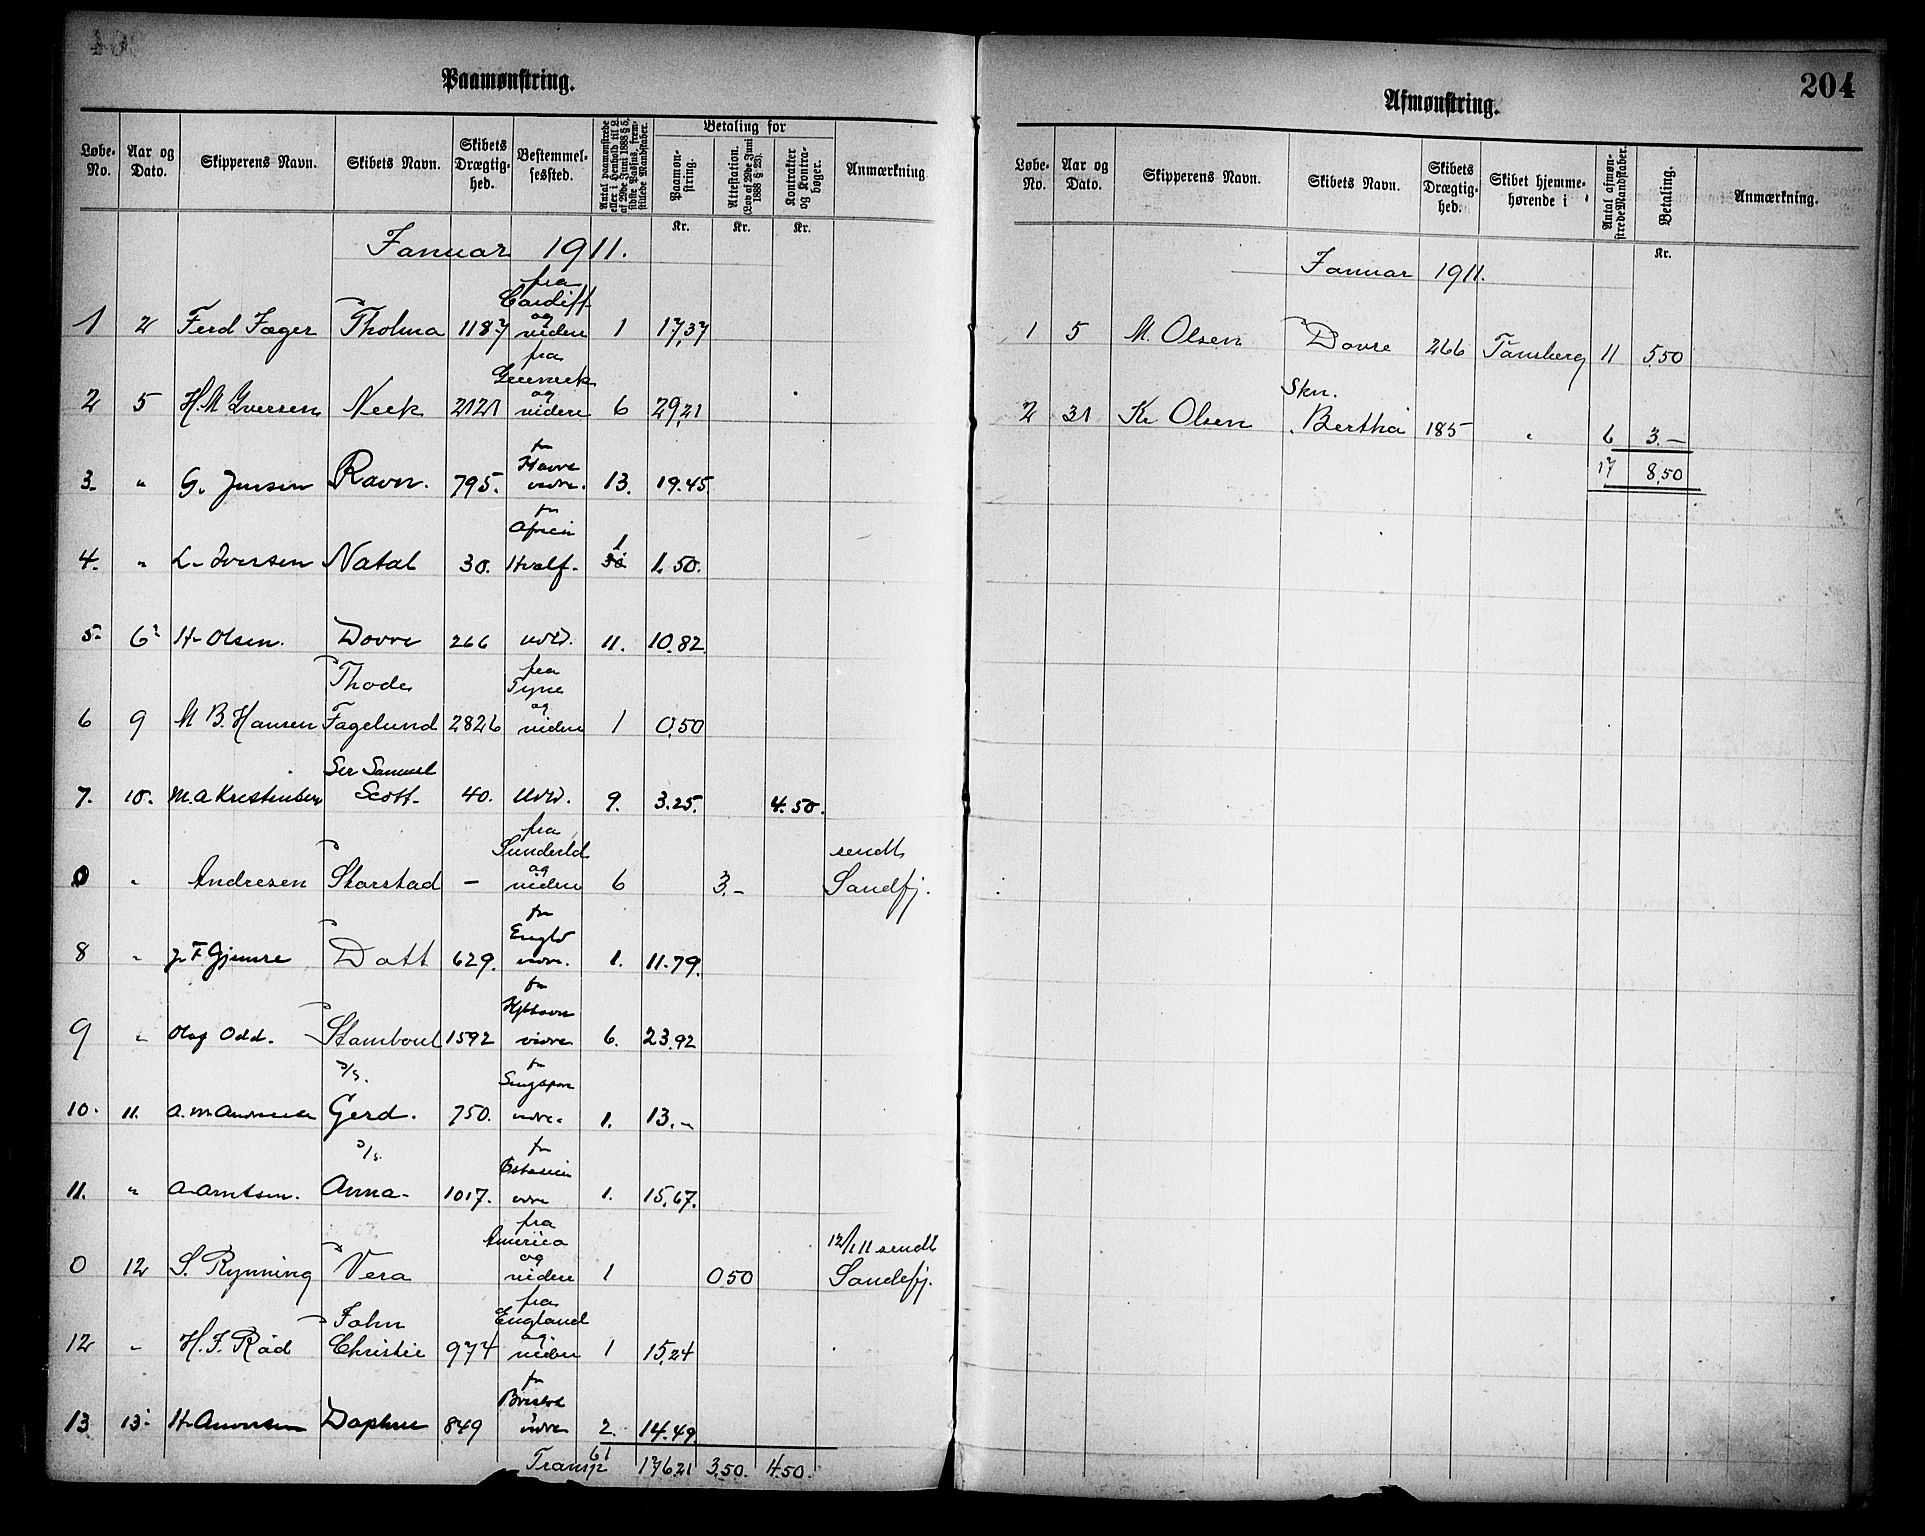 Paamønstring.
Løbe-No. Aar og Dato. Skipperens Navn. Skibets Navn. Skibets Drægtig-hed. Bestemmel-sessted. Antal paamønstrede eller i Henhold til L. af 29de Juni 1888 § 5, sidste Passus, frem-stillede Mandskaber. Betaling for Paamøn-string. Attestation. (Lov af 29de Juni 1888 § 25). Kontrakter og Kontra-bøger. Anmærkning
Kr. Kr. Kr.
Januar 1911.
1 2 Ferd Jæger Tholma 1187 fra Cardiff og videre 1 17,37
2 5 H. M Iversen Neck 2121 fra og videre 6 29,21
3. " G. Jensen Ravn. 795. fr Havre vidre. 13. 19.45.
4. " L. Iversen Natal 30. fr Hvalf. 1 1.50.
5. 6 H. Olsen. Dovre 266 11. 10.82.
6 9 M B. Hansen Thode Fagelund 2826 fra Tyne og videre 1 0,50
7. 10. M. A Kristensen Ser Samuel Scott. 40. 9. 3.25. 4.50.
0 " Andresen Storstad – fra Sunderld og videre 6 3.– sendt Sandfj.
8 " J. F. Gjemre Dott 629. fr Engld vidre. 1. 11.79.
9 " Olaf Odd. Stamboul 1592 fr Kjbhavn vidre 6. 23,92
10. 11. A. M Andresen S/S. Gerd. 750. fr vidre. 1. 13.–
11. " A. Arntsen. S/S. Anna. 1017. fr Ostasien vdre 1. 15.67.
0 12 S. Rynning Vera fra America og videre 1 0 50 12/1 11 sendt Sandefj.
12 " H. F. Råd John Christie 974 fra England og. videre 1 15,24
13 13 H. Daphne 849 fr vidre 2. 14.49.
Transp 61 176.21 3,50. 4.50.
204
Afmønstring.
Løbe-No. Aar og Dato. Skipperens Navn. Skibets Navn. Skibets Drægtig-hed. Skibet hjemme-hørende i Antal afmøn-strede Mandskaber. Betaling. Anmærkning.
Kr.
Januar 1911.
1 5 M. Olsen Dovre 266 Tønsberg 11 5,50
2 31 Kr Olsen Skn. Bertha 185 " 6 3.–
17 8,50